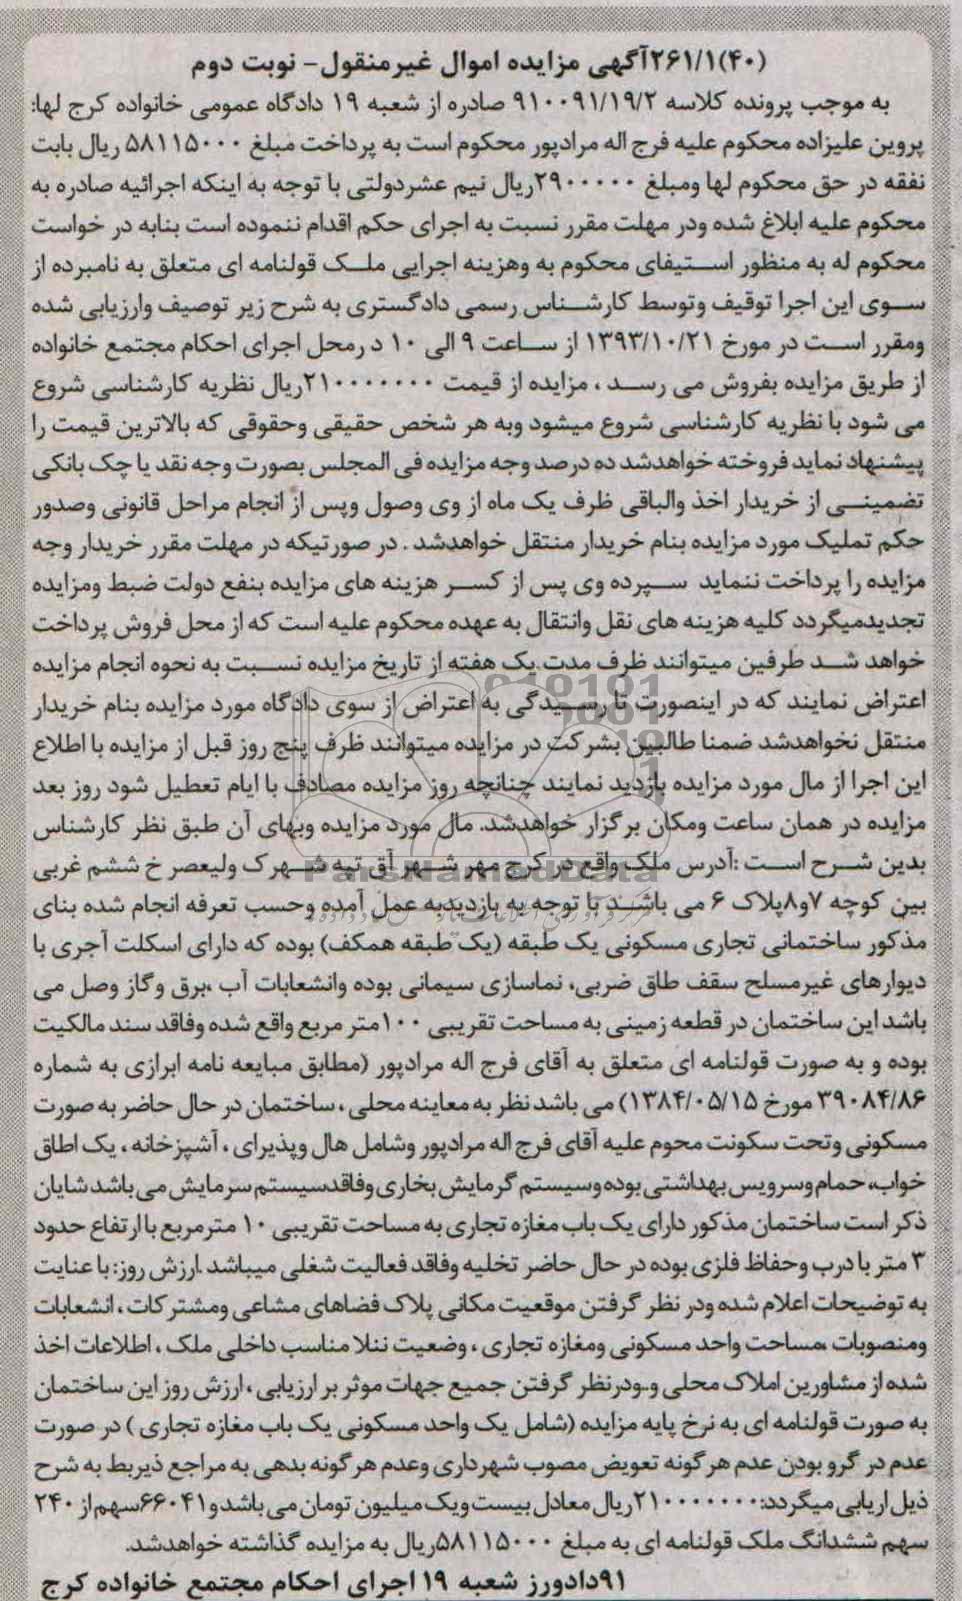 ۲۶۱/۱(۴۰)آگهی مزایده اموال غیرمنقول- نوبت دوم
به موجب پرونده کلاسه ۹۱۰۰۹۱/۱۹/۲ صادره از شعبه ۱۹ دادگاه عمومی خانواده کرج لها:
پروین علیزاده محکوم علیه فرج اله مرادپور محکوم است به پرداخت مبلغ ۵۸۱۱۵۰۰۰ ریال بابت
نفقه در حق محکوم لها ومبلغ ۲۹۰۰۰۰۰ریال نیم عشردولتی با توجه به اینکه اجرائیه صادره به
محکوم علیه ابلاغ شده ودر مهلت مقرر نسبت به اجرای حکم اقدام ننموده است بنابه در خواست
محکوم له به منظور استیفای محکوم به وهزینه اجرایی ملک قولنامه ای متعلق به نامبرده از
سوی این اجرا توقیف وتوسط کارشناس رسمی دادگستری به شرح زیر توصیف وارزیابی شده
ومقرر است در مورخ ۱۳۹۳/۱۰/۲۱ از ساعت ۹ الی ۱۰ د رمحل اجرای احکام مجتمع خانواده
از طریق مزایده بفروش می رسد ، مزایده از قیمت ۲۱۰۰۰۰۰۰۰ریال نظریه کارشناسی شروع
می شود با نظریه کارشناسی شروع میشود وبه هر شخص حقیقی وحقوقی که بالاترین قیمت را
پیشنهاد نماید فروخته خواهدشد ده درصد وجه مزایده فی المجلس بصورت وجه نقد یا چک بانکی
تضمینی از خریدار اخذ والباقی ظرف یک ماه از وی وصول وپس از انجام مراحل قانونی وصدور
حکم تملیک مورد مزایده بنام خریدار منتقل خواهدشد . در صورتیکه در مهلت مقرر خریدار وجه
مزایده را پرداخت ننماید سپرده وی پس از کسر هزینه های مزایده بنفع دولت ضبط ومزایده
تجدیدمیگردد کلیه هزینه های نقل وانتقال به عهده محکوم علیه است که از محل فروش پرداخت
خواهد شد طرفین میتوانند ظرف مدت یک هفته از تاریخ مزایده نسبت به نحوه انجام مزایده
اعتراض نمایند که در اینصورت تا رسیدگی به اعتراض از سوی دادگاه مورد مزایده بنام خریدار
منتقل نخواهدشد ضمنا طالبین بشرکت در مزایده میتوانند ظرف پنج روز قبل از مزایده با اطلاع
این اجرا از مال مورد مزایده بازدید نمایند چنانچه روز مزایده مصادف با ایام تعطیل شود روز بعد
مزایده در همان ساعت ومکان برگزار خواهدشد. مال مورد مزایده وبهای آن طبق نظر کارشناس
بدین شرح است :آدرس ملک واقع در کرج مهر شهر آق تپه شهرک ولیعصر خ ششم غربی
بین کوچه ۷و۸پلاک ۶ می باشد با توجه به بازدیدبه عمل آمده وحسب تعرفه انجام شده بنای
مذکور ساختمانی تجاری مسکونی یک طبقه (یک طبقه همکف) بوده که دارای اسکلت آجری با
دیوارهای غیرمسلح سقف طاق ضربی، نماسازی سیمانی بوده وانشعابات آب ،برق وگاز وصل می
باشد این ساختمان در قطعه زمینی به مساحت تقریبی ۱۰۰متر مربع واقع شده وفاقد سند مالکیت
بوده و به صورت قولنامه ای متعلق به آقای فرج اله مرادپور (مطابق مبایعه نامه ابرازی به شماره
۳۹۰۸۴/۸۶ مورخ ۱۳۸۴/۰۵/۱۵) می باشد نظر به معاینه محلی ، ساختمان در حال حاضر به صورت
مسکونی وتحت سکونت محوم علیه آقای فرج اله مرادپور وشامل هال وپذیرای ، آشپزخانه ، یک اطاق
خواب، حمام وسرویس بهداشتی بوده وسیستم گرمایش بخاری وفاقدسیستم سرمایش می باشد شایان
ذکر است ساختمان مذکور دارای یک باب مغازه تجاری به مساحت تقریبی ۱۰ مترمربع با ارتفاع حدود
۳ متر با درب وحفاظ فلزی بوده در حال حاضر تخلیه وفاقد فعالیت شغلی میباشد .ارزش روز: با عنایت
به توضیحات اعلام شده ودر نظر گرفتن موقعیت مکانی پلاک فضاهای مشاعی ومشترکات ، انشعابات
ومنصوبات ،مساحت واحد مسکونی ومغازه تجاری ، وضعیت نتلا مناسب داخلی ملک ، اطلاعات اخذ
شده از مشاورین املاک محلی و..ودرنظر گرفتن جمیع جهات موثر بر ارزیابی ، ارزش روز این ساختمان
به صورت قولنامه ای به نرخ پایه مزایده (شامل یک واحد مسکونی یک باب مغازه تجاری ) در صورت
عدم در گرو بودن عدم هرگونه تعویض مصوب شهرداری وعدم هرگونه بدهی به مراجع ذیربط به شرح
ذیل اریابی میگردد:۲۱۰۰۰۰۰۰۰ریال معادل بیست ویک میلیون تومان می باشد و ۶۶۰۴۱سهم از ۲۴۰
سهم ششدانگ ملک قولنامه ای به مبلغ ۵۸۱۱۵۰۰۰ریال به مزایده گذاشته خواهدشد.
۹۱دادورز شعبه ۱۹ اجرای احکام مجتمع خانواده کرج
ParsNamadData